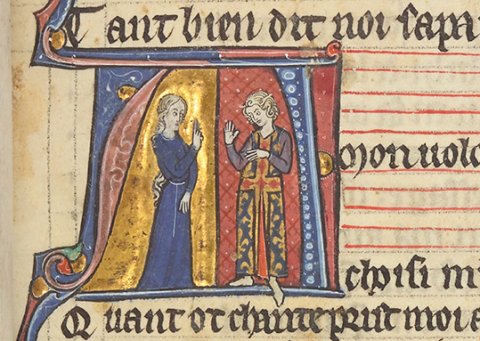 Tant bien dit noi sapa
A mon uolo
choisi m
Quant ot chante prist moi a